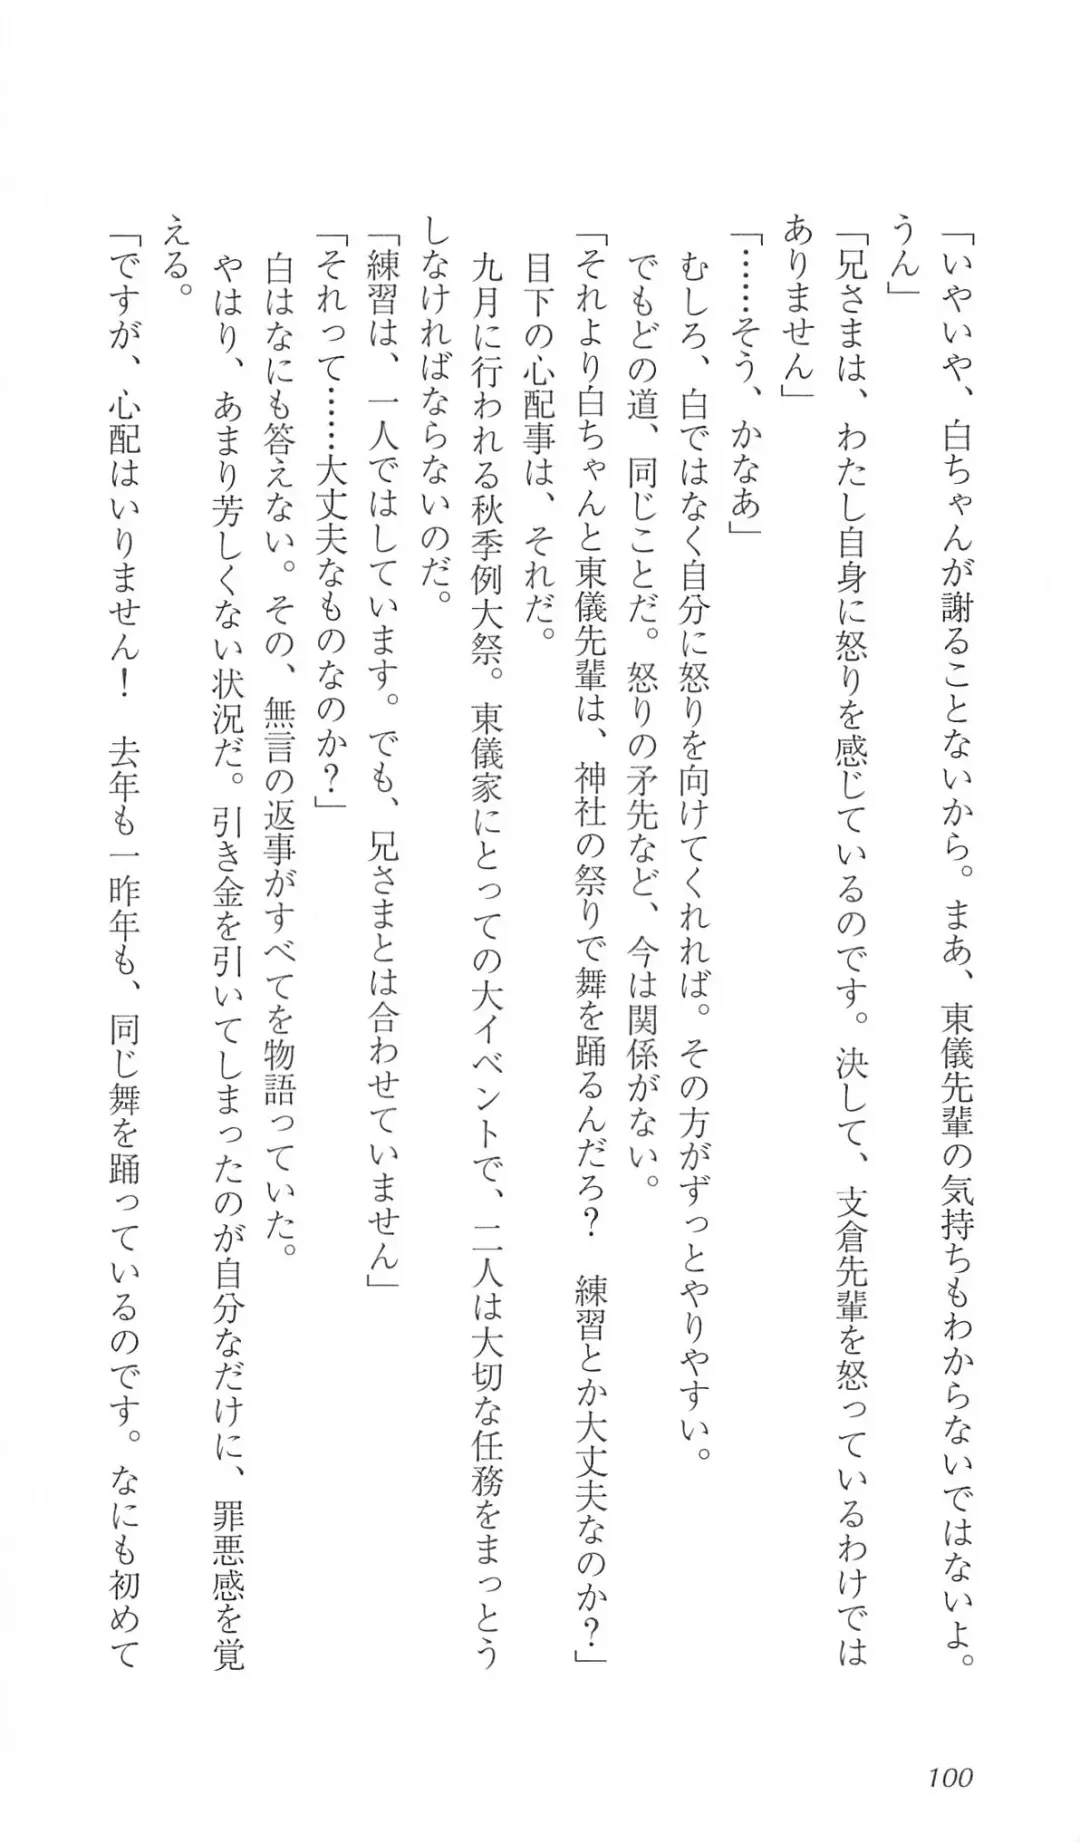 「いやいや、白ちゃんが謝ることないから。まあ、東儀先輩の気持ちもわからないではないよ。
うん」
「兄さまは、わたし自身に怒りを感じているのです。決して、支倉先輩を怒っているわけでは
ありません」
「……そう、かなあ」
　むしろ、白ではなく自分に怒りを向けてくれれば。その方がずっとやりやすい。
　でもどの道、同じことだ。怒りの矛先など、今は関係がない。
「それより白ちゃんと東儀先輩は、神社の祭りで舞を踊るんだろ？　練習とか大丈夫なのか？」
　目下の心配事は、それだ。
　九月に行われる秋季例大祭。東儀家にとっての大イベントで、二人は大切な任務をまっとう
しなければならないのだ。
「練習は、一人ではしています。でも、兄さまとは合わせていません」
「それって……大丈夫なものなのか？」
　白はなにも答えない。その、無言の返事がすべてを物語っていた。
　やはり、あまり芳しくない状況だ。引き金を引いてしまったのが自分なだけに、罪悪感を覚
える。
「ですが、心配はいりません！　去年も一昨年も、同じ舞を踊っているのです。なにも初めて
100